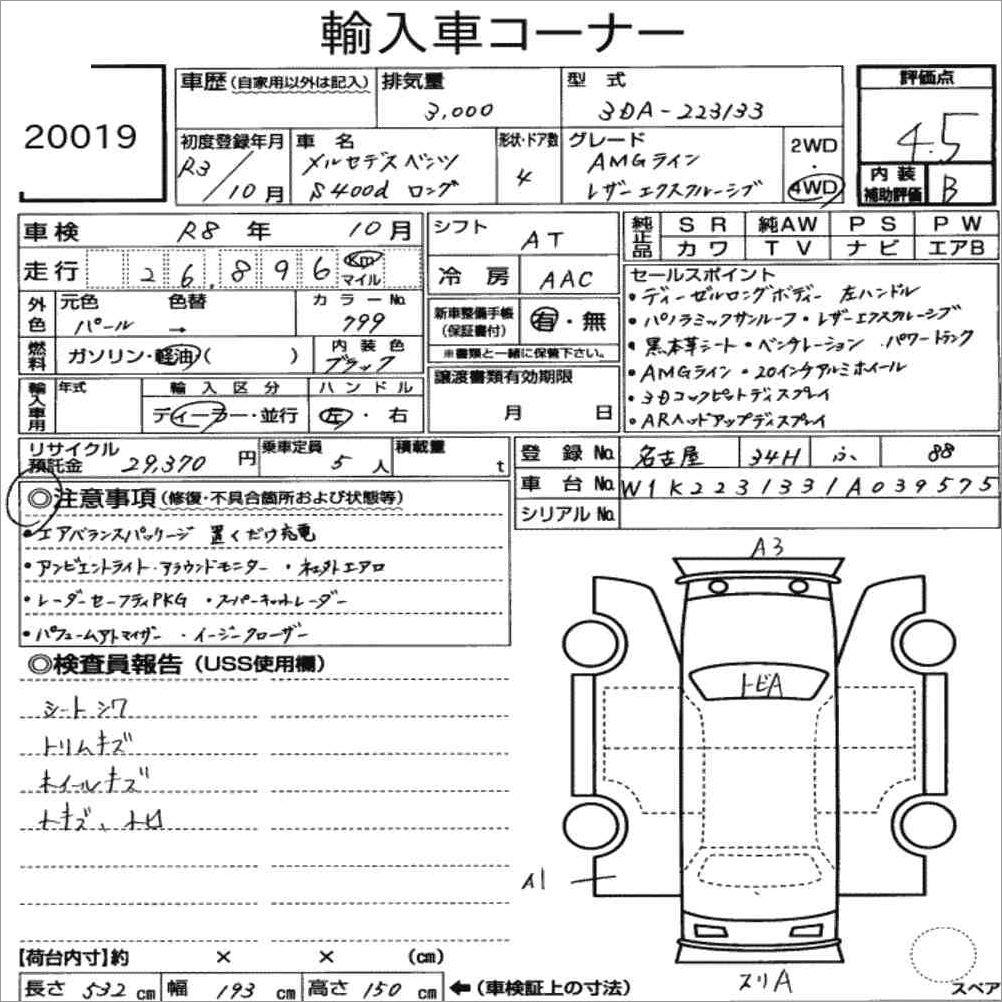 輸入車コーナー
20019
車歴(自家用以外は記入)
排気量
3,000
型式
3DA-223133
評価点
4.5
初度登録年月
R3/10月
車名
メルセデスベンツ
S400d ロング
形状・ドア数
4
グレード
AMGライン
レザーエクスクルーシブ
2WD
・
4WD
内装
補助評価
B
車検 R8年 10月
走行 26,896 Km マイル
外色
元色 色替
パール →
カラーNo.
799
燃料
ガソリン・軽油( )
内装色
ブラック
輸入車用
年式
輸入区分
ディーラー・並行
ハンドル
左・右
シフト AT
冷房 AAC
新車整備手帳
(保証書付)
有・無
※書類と一緒に保管下さい。
譲渡書類有効期限
月 日
純正品
SR 純AW PS PW
カワ TV ナビ エアB
セールスポイント
・ディーゼルロングボディー 左ハンドル
・パノラミックサンルーフ・レザーエクスクルーシブ
・黒本革シート・ベンチレーション・パワートランク
・AMGライン・20インチアルミホイール
・3Dコックピットディスプレイ
・ARヘッドアップディスプレイ
リサイクル
預託金 29,370円
乗車定員
5人
積載量
t
登録No. 名古屋 34H ふ 88
車台No. W1K2231331A039575
シリアルNo.
◎注意事項(修復・不具合箇所および状態等)
・エアバランスパッケージ 置くだけ充電
・アンビエントライト・アラウンドモニター ・社外エアロ
・レーダーセーフティPKG ・スーパーキャットレーダー
・パフュームアトマイザー ・イージークローザー
◎検査員報告(USS使用欄)
シートシワ
トリムキズ
ホイールキズ
下キズ、下ロ
A3
トビA
A1
スリA
スペア
【荷台内寸】約 × × (cm)
長さ 532cm 幅 193cm 高さ 150cm ←(車検証上の寸法)